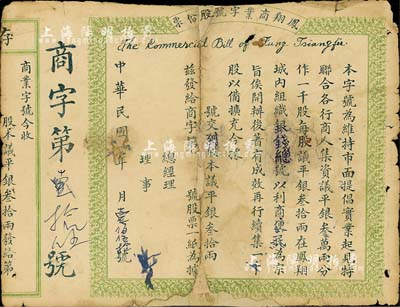 鳳翔商業字號股份票
The Kommercial Bill of Fung Tsiangfu
本字號為維持市面提倡實業起見特
聯合各行商人集資議平銀叁萬兩分
作一千股每股議平銀叁拾兩在鳳翔
城內組織銀錢總號以利商 為宗
旨俟開辦後著有成效再行續集
股以備擴充合將
號交 股本議平銀叁拾兩
茲發給商字 號股票一紙為據
總經理
理事
中華民國 年 月
商字第 拾 號
存
商業字號今收
股本議平銀叁拾兩發給第
上海陽明拍賣
上海陽明拍賣